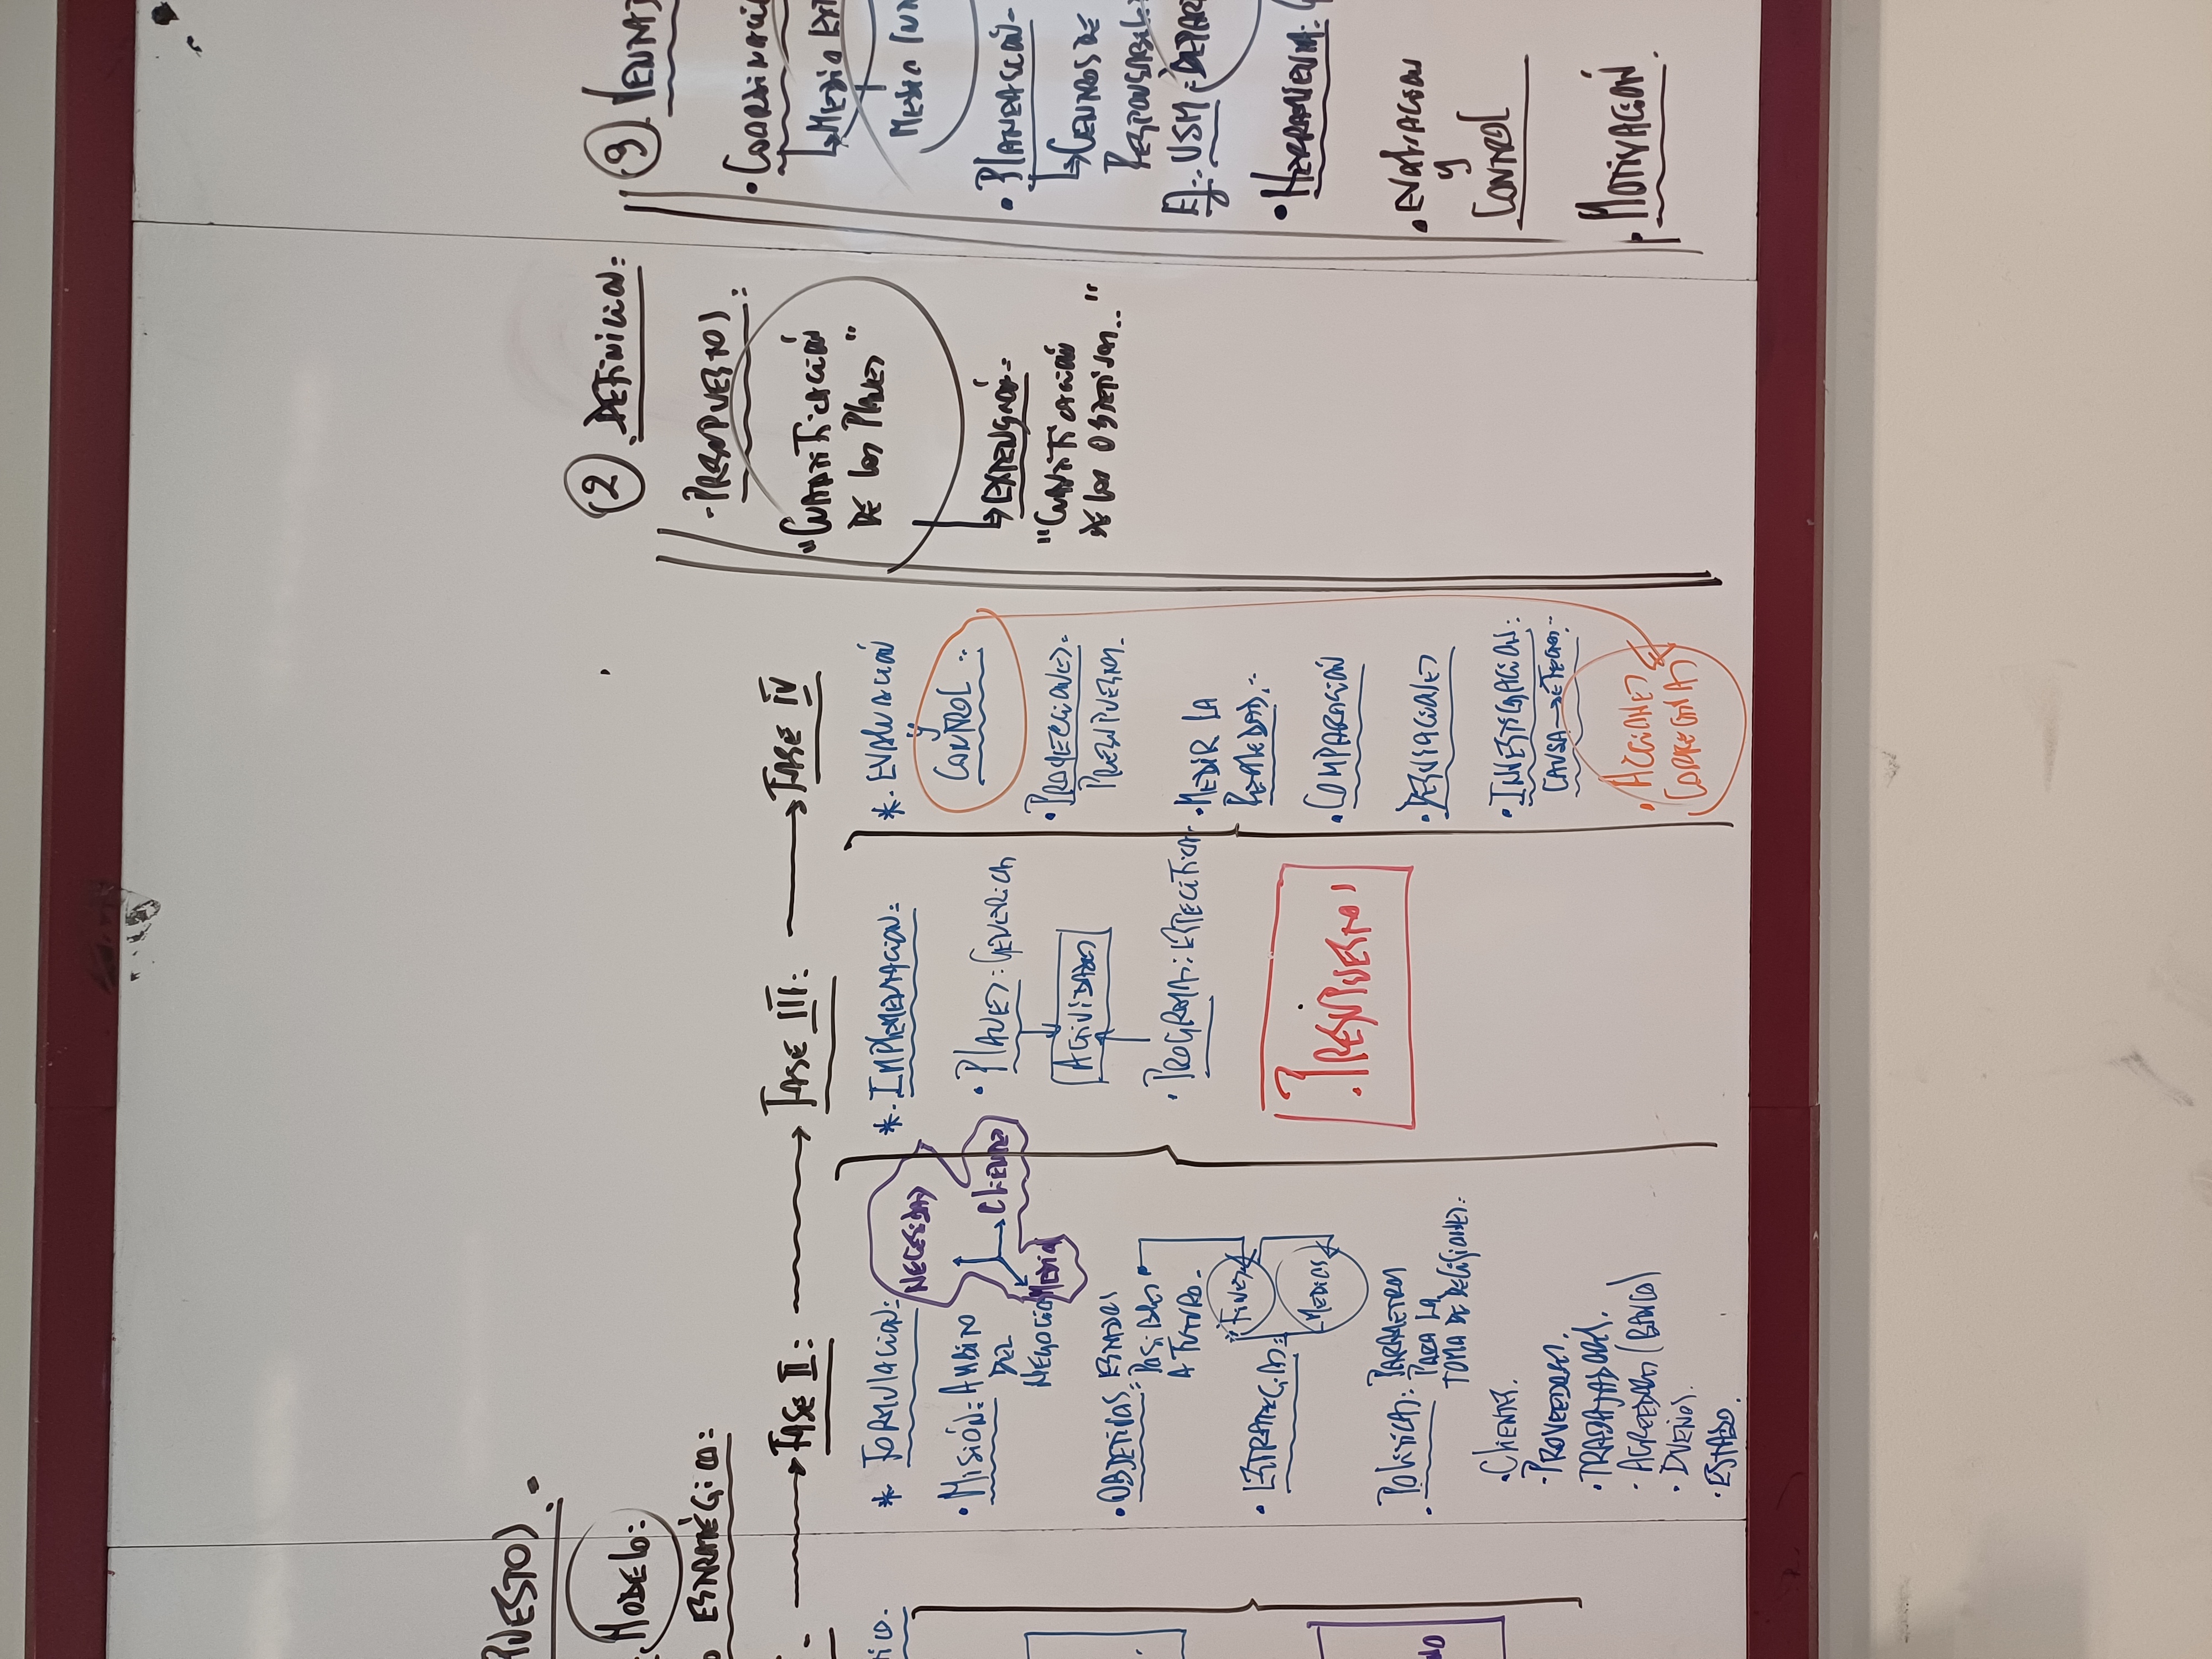 PUESTO).
Modelo:
o ESTRATÉGICO:
I. → FASE II: → FASE III: → FASE IV
ico.
NO
*. FORMULACION:
NECESIDAD
CLIENTES
MEDIO
• MISIÓN: AMBITO
DEL
NEGOCIO
• OBJETIVOS: ESTADOS
POSIBLES
A FUTURO.
• ESTRATEGIAS:
FINES
MEDIOS
• POLITICAS: PARAMETROS
PARA LA
TOMA DE DECISIONES:
• CLIENTES.
- PROVEEDORES.
• TRABAJADORES.
- ACREEDORES (BANCO)
• DUEÑOS.
• ESTADO.
*. IMPLEMENTACION:
• PLANES: GENERICOS
ACTIVIDADES
• PROGRAMAS: ESPECIFICOS
PRESUPUESTOS
*. EVALUACIÓN
y
CONTROL
• PROYECCIONES:
PRESUPUESTOS.
• MEDIR LA
REALIDAD.
• COMPARACIÓN
• DESVIACIONES
• INVESTIGACION:
CAUSA → EFECTO.
• ACCIONES
CORRECTIVAS
2 DEFINICION:
- PRESUPUESTOS:
"CUANTIFICACIÓN
DE LOS PLANES"
EXTENSIÓN:
"CUANTIFICACIÓN
DE LOS OBJETIVOS.."
3. VENTAJ
• COORDINACIÓ
MEDIO EXT
MEDIO INT
• PLANEACIÓN-
CENTROS DE
RESPONSABILI
Ej.: USM: DEPAR
• HERRAMIENTA:
• EVALUACION
y
CONTROL
• MOTIVACIÓN.